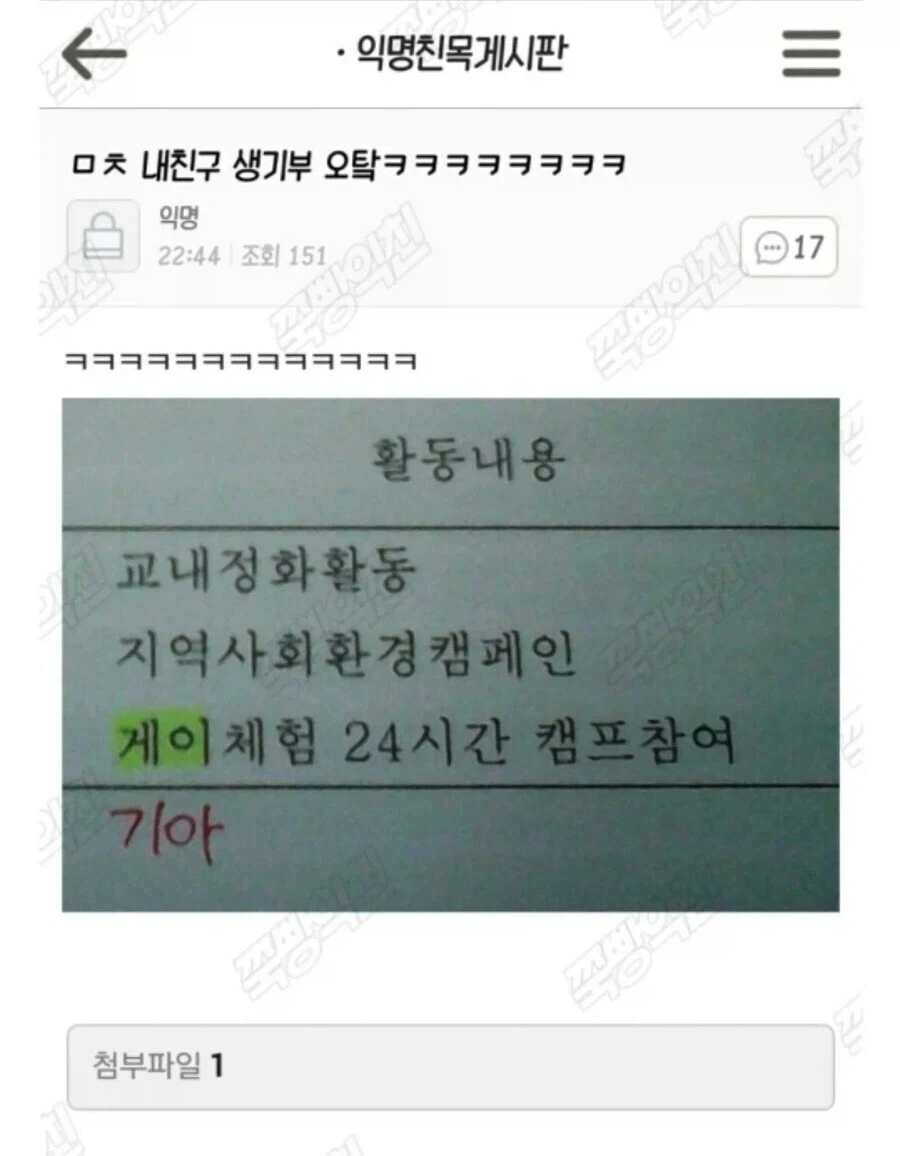 · 익명친목게시판
ㅁㅊ 내친구 생기부 오탘ㅋㅋㅋㅋㅋㅋㅋㅋㅋ
익명
22:44 조회 151
17
ㅋㅋㅋㅋㅋㅋㅋㅋㅋㅋㅋㅋㅋ
활동내용
교내정화활동
지역사회환경캠페인
게이체험 24시간 캠프참여
기아
첨부파일 1
쭉빵익친